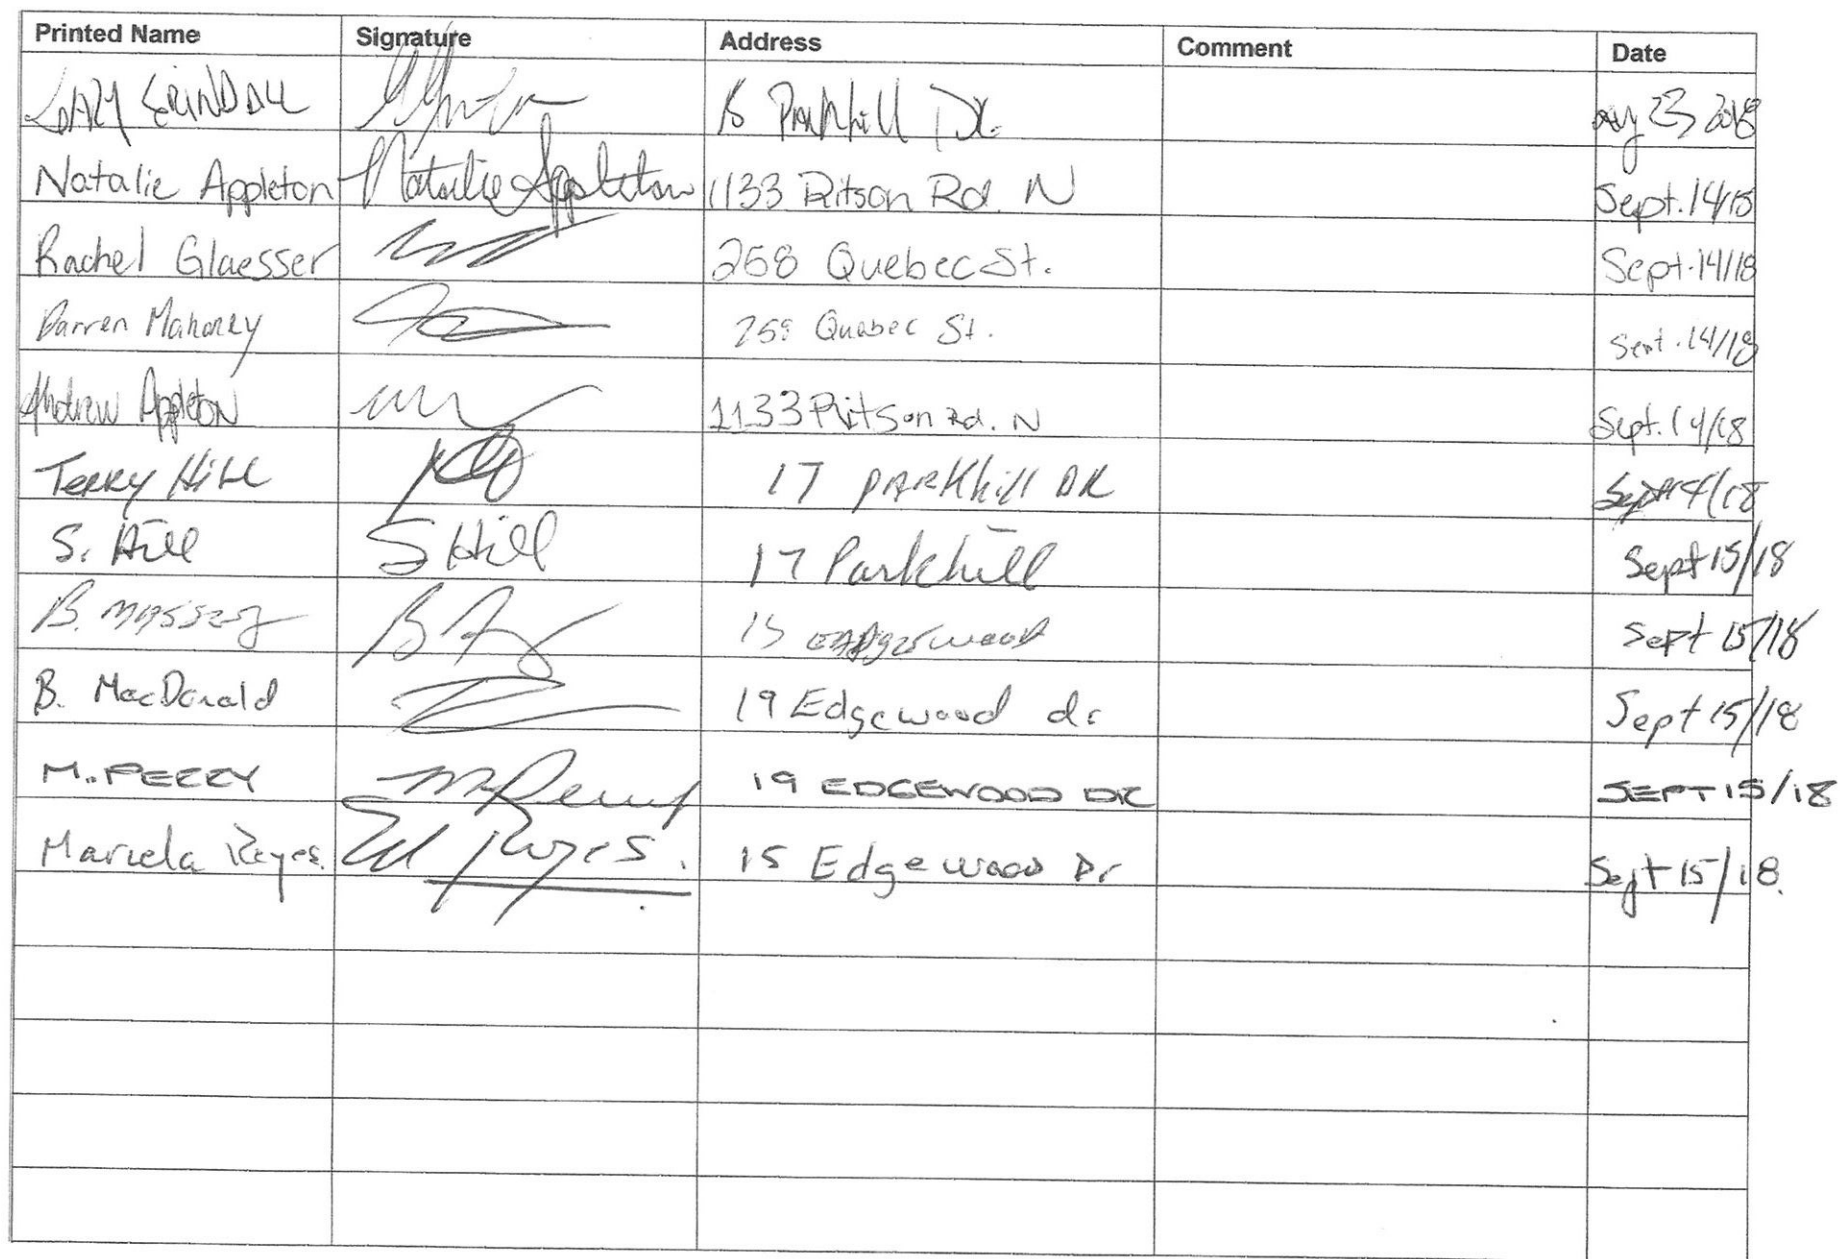 Printed Name Signature Address Comment Date
Parkhill Dr. 23 2018
Natalie Appleton Natalie Appleton 1133 Ritson Rd. N Sept. 14/18
Rachel Glaesser 268 Quebec St. Sept. 14/18
Darren Mahoney Quebec St. Sept. 14/18
Andrew Appleton 1133 Ritson Rd. N Sept. 14/18
Terry Hill 17 PARKhill DR Sept 14/18
S. Hill S Hill 17 Parkhill Sept 15/18
B. MASSEY 15 Sept 15/18
B. MacDonald 19 Edgewood dr Sept 15/18
M. PERRY M Perry 19 EDGEWOOD DR SEPT 15/18
Mariela Reyes. Reyes. 15 Edgewood Dr Sept 15/18.